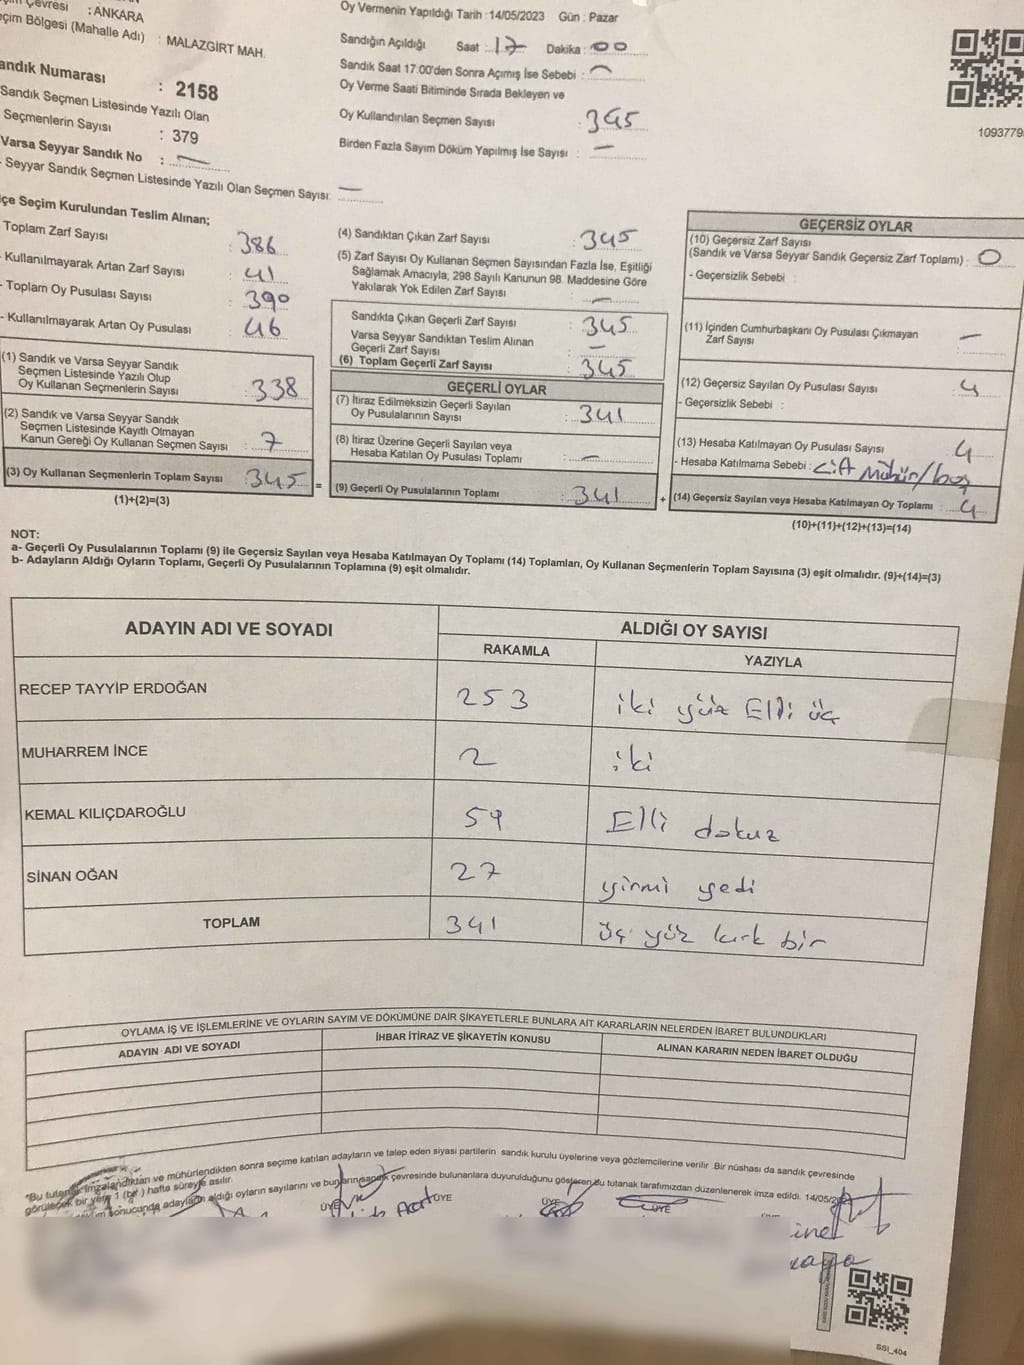 Çevresi : ANKARA
Seçim Bölgesi (Mahalle Adı) : MALAZGİRT MAH.
Sandık Numarası : 2158
Sandık Seçmen Listesinde Yazılı Olan
Seçmenlerin Sayısı : 379
Varsa Seyyar Sandık No : —
- Seyyar Sandık Seçmen Listesinde Yazılı Olan Seçmen Sayısı: —
Oy Vermenin Yapıldığı Tarih : 14/05/2023 Gün : Pazar
Sandığın Açıldığı Saat : 17 Dakika : 00
Sandık Saat 17:00'den Sonra Açımış İse Sebebi : —
Oy Verme Saati Bitiminde Sırada Bekleyen ve
Oy Kullandırılan Seçmen Sayısı : 345
Birden Fazla Sayım Döküm Yapılmış İse Sayısı : —
1093779
İlçe Seçim Kurulundan Teslim Alınan;
Toplam Zarf Sayısı : 386
- Kullanılmayarak Artan Zarf Sayısı : 41
- Toplam Oy Pusulası Sayısı : 390
- Kullanılmayarak Artan Oy Pusulası : 46
(1) Sandık ve Varsa Seyyar Sandık
Seçmen Listesinde Yazılı Olup
Oy Kullanan Seçmenlerin Sayısı : 338
(2) Sandık ve Varsa Seyyar Sandık
Seçmen Listesinde Kayıtlı Olmayan
Kanun Gereği Oy Kullanan Seçmen Sayısı : 7
(3) Oy Kullanan Seçmenlerin Toplam Sayısı : 345 =
(1)+(2)=(3)
(4) Sandıktan Çıkan Zarf Sayısı : 345
(5) Zarf Sayısı Oy Kullanan Seçmen Sayısından Fazla İse, Eşitliği
Sağlamak Amacıyla, 298 Sayılı Kanunun 98. Maddesine Göre
Yakılarak Yok Edilen Zarf Sayısı : —
Sandıkta Çıkan Geçerli Zarf Sayısı : 345
Varsa Seyyar Sandıktan Teslim Alınan
Geçerli Zarf Sayısı : —
(6) Toplam Geçerli Zarf Sayısı : 345
GEÇERLİ OYLAR
(7) İtiraz Edilmeksizin Geçerli Sayılan
Oy Pusulalarının Sayısı : 341
(8) İtiraz Üzerine Geçerli Sayılan veya
Hesaba Katılan Oy Pusulası Toplamı : —
(9) Geçerli Oy Pusulalarının Toplamı : 341 +
GEÇERSİZ OYLAR
(10) Geçersiz Zarf Sayısı
(Sandık ve Varsa Seyyar Sandık Geçersiz Zarf Toplamı) : 0
- Geçersizlik Sebebi :
(11) İçinden Cumhurbaşkanı Oy Pusulası Çıkmayan
Zarf Sayısı : —
(12) Geçersiz Sayılan Oy Pusulası Sayısı : 4
- Geçersizlik Sebebi :
(13) Hesaba Katılmayan Oy Pusulası Sayısı : 4
- Hesaba Katılmama Sebebi : mühür/boş
(14) Geçersiz Sayılan veya Hesaba Katılmayan Oy Toplamı : 4
(10)+(11)+(12)+(13)=(14)
NOT:
a- Geçerli Oy Pusulalarının Toplamı (9) ile Geçersiz Sayılan veya Hesaba Katılmayan Oy Toplamı (14) Toplamları, Oy Kullanan Seçmenlerin Toplam Sayısına (3) eşit olmalıdır. (9)+(14)=(3)
b- Adayların Aldığı Oyların Toplamı, Geçerli Oy Pusulalarının Toplamına (9) eşit olmalıdır.
ADAYIN ADI VE SOYADI ALDIĞI OY SAYISI
RAKAMLA YAZIYLA
RECEP TAYYİP ERDOĞAN 253 iki yüz Elli üç
MUHARREM İNCE 2 iki
KEMAL KILIÇDAROĞLU 59 Elli dokuz
SİNAN OĞAN 27 yirmi yedi
TOPLAM 341 üç yüz kırk bir
OYLAMA İŞ VE İŞLEMLERİNE VE OYLARIN SAYIM VE DÖKÜMÜNE DAİR ŞİKAYETLERLE BUNLARA AİT KARARLARIN NELERDEN İBARET BULUNDUKLARI
ADAYIN ADI VE SOYADI İHBAR İTİRAZ VE ŞİKAYETİN KONUSU ALINAN KARARIN NEDEN İBARET OLDUĞU
*Bu tutanak imzalandıktan ve mühürlendikten sonra seçime katılan adayların ve talep eden siyasi partilerin sandık kurulu üyelerine veya gözlemcilerine verilir. Bir nüshası da sandık çevresinde
görülecek bir yere 1 (bir) hafta süreyle asılır.
sonucunda adayların aldığı oyların sayılarını ve bunların sandık çevresinde bulunanlara duyurulduğunu gösteren bu tutanak tarafımızdan düzenlenerek imza edildi. 14/05/2023
ÜYE ÜYE ÜYE ÜYE
SSI_404